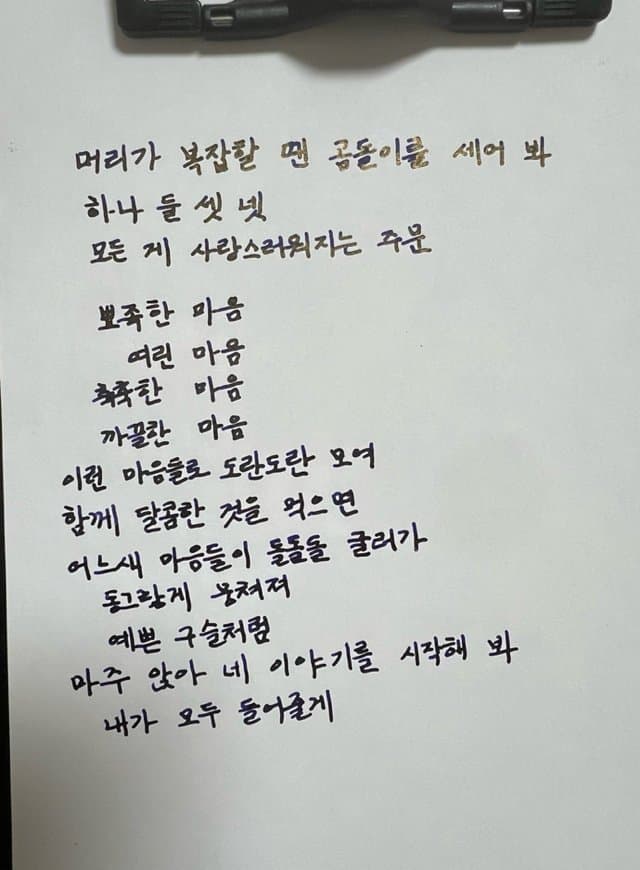 머리가 복잡할 땐 곰돌이를 세어 봐
하나 둘 셋 넷
모든 게 사랑스러워지는 주문
뾰족한 마음
여린 마음
축축한 마음
까끌한 마음
이런 마음들로 도란도란 모여
함께 달콤한 것을 먹으면
어느새 마음들이 돌돌돌 굴러가
동그랗게 뭉쳐져
예쁜 구슬처럼
마주 앉아 네 이야기를 시작해 봐
내가 모두 들어줄게